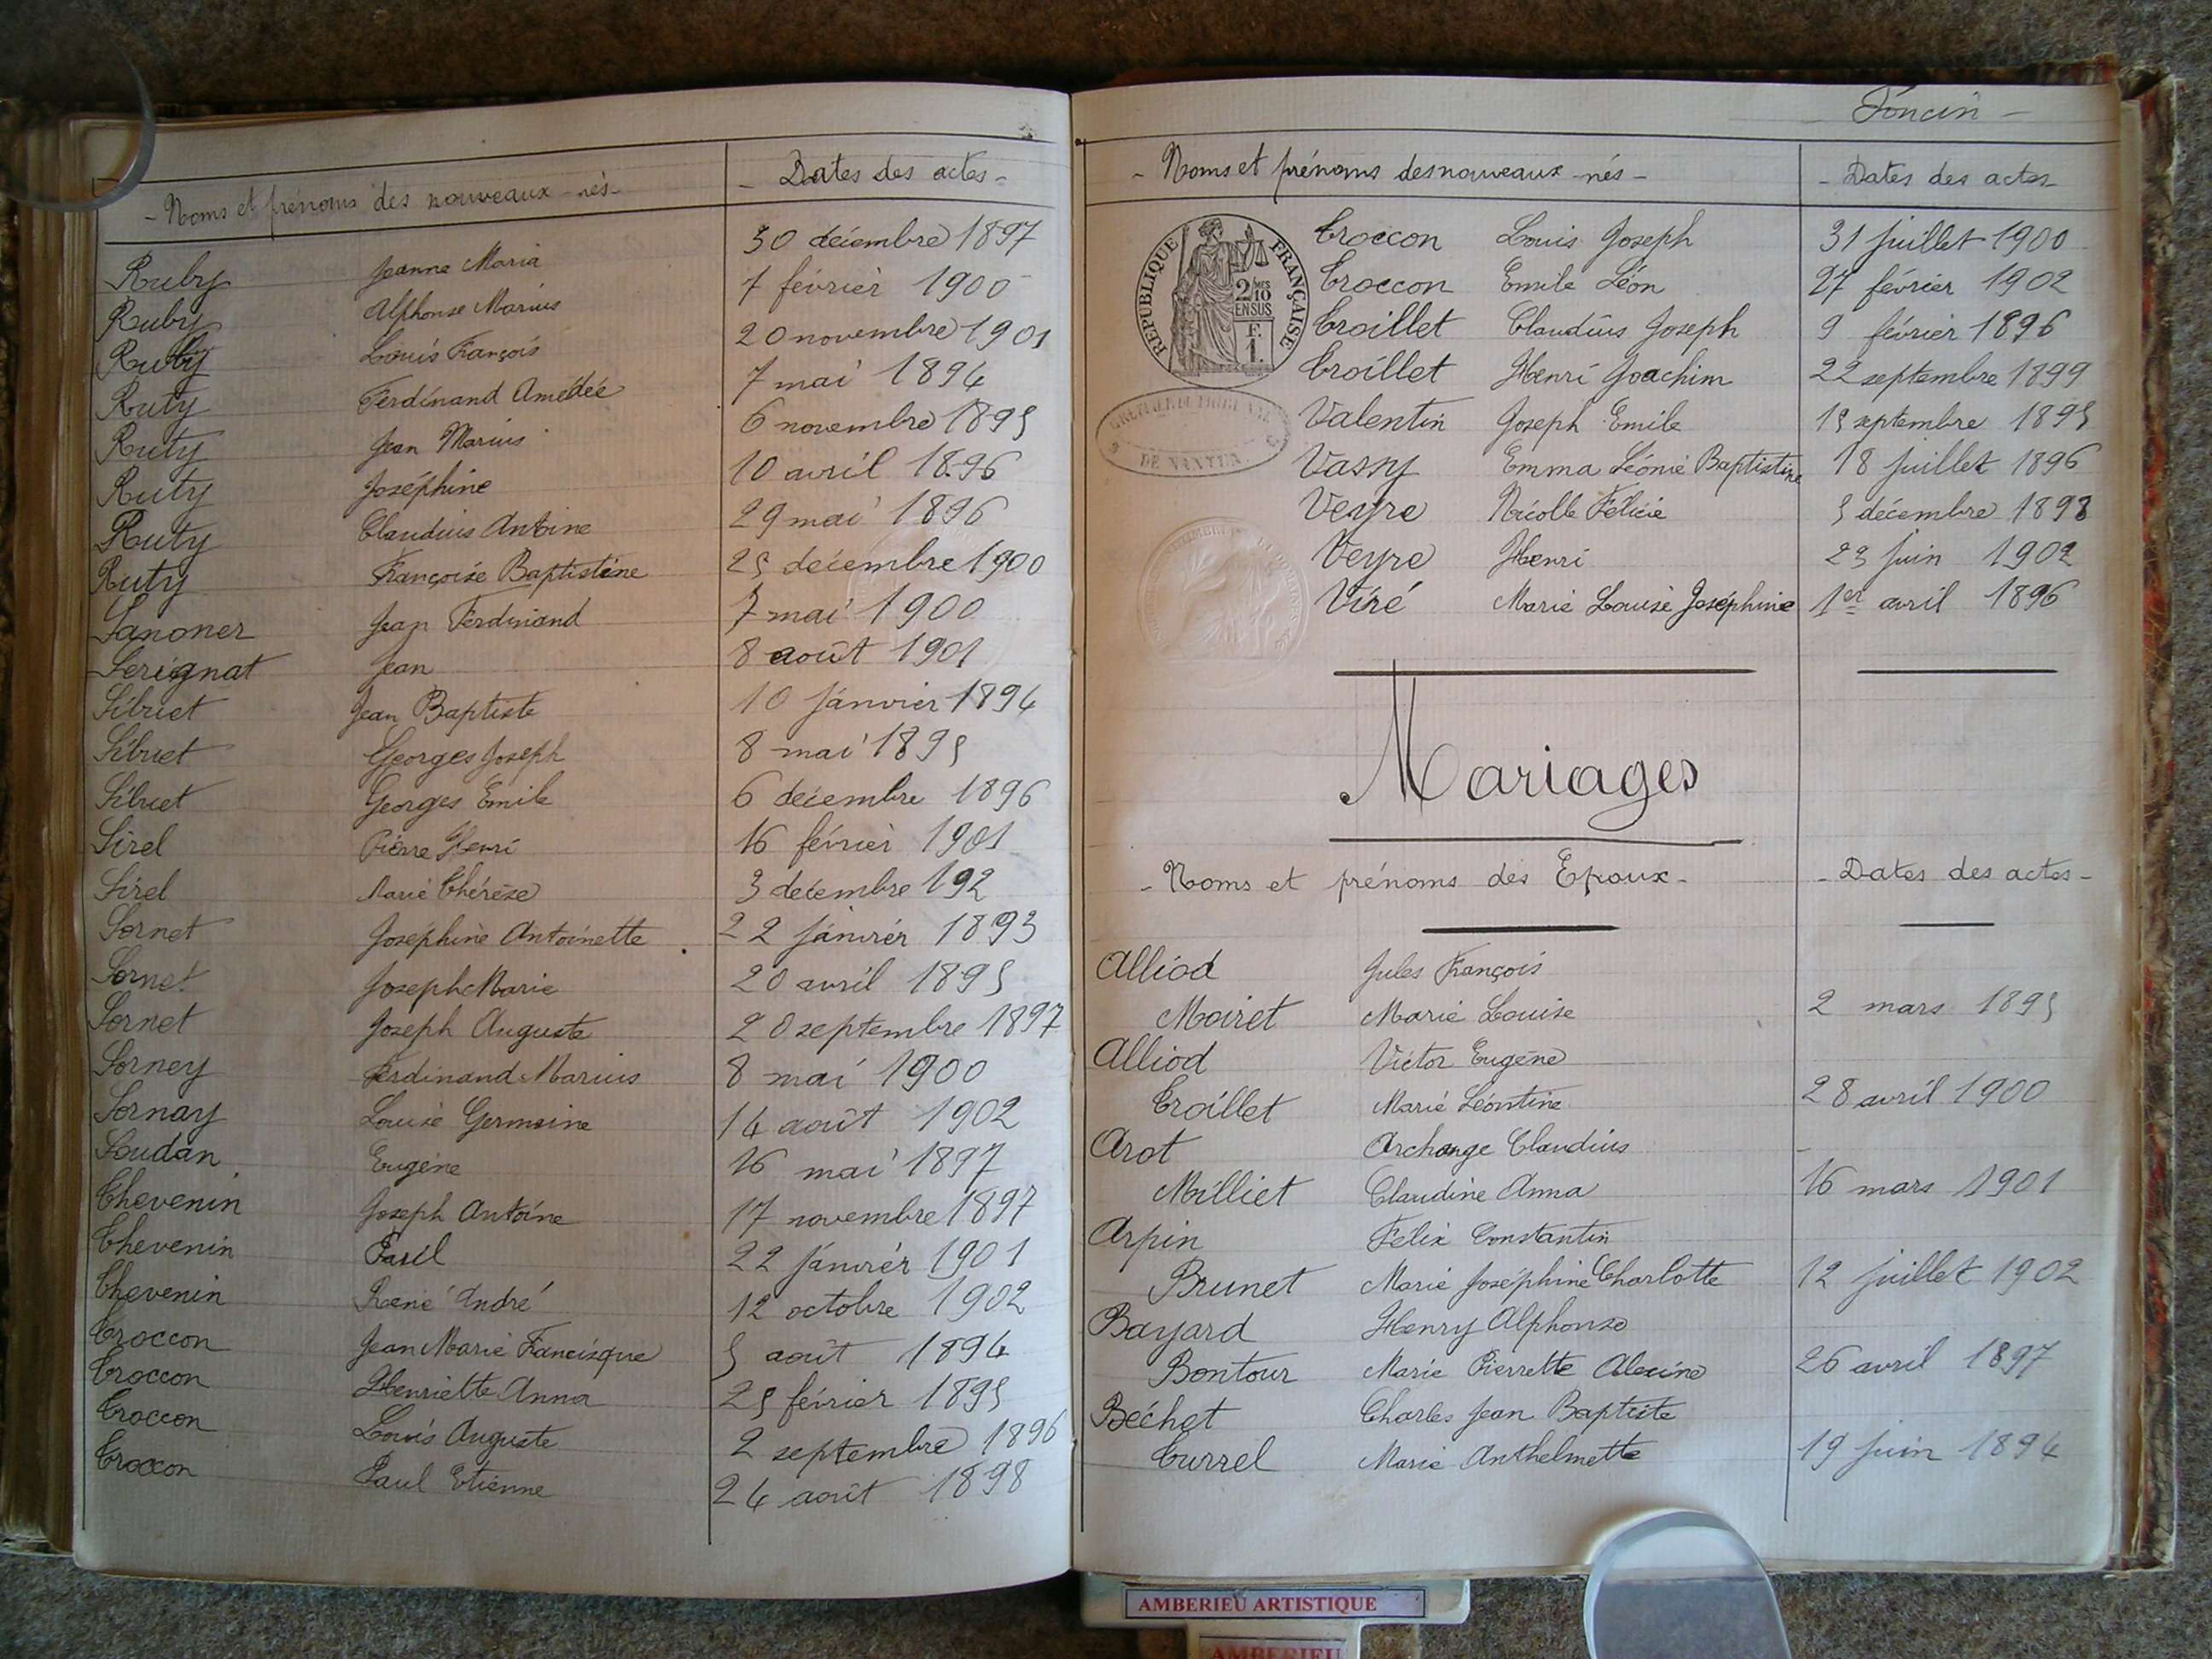 - Noms et prénoms des nouveaux-nés -
- Dates des actes -
Ruby Jeanne Maria 30 décembre 1897
Ruby Alphonse Marius 7 février 1900
Ruby Louis François 20 novembre 1901
Ruty Ferdinand Amédée 7 mai 1894
Ruty Jean Marius 6 novembre 1895
Ruty Joséphine 10 avril 1896
Ruty Claudius Antoine 29 mai 1896
Ruty Françoise Baptistine 25 décembre 1900
Sanoner Jean Ferdinand 7 mai 1900
Serignat Jean 8 août 1901
Sibuet Jean Baptiste 10 janvier 1894
Sibuet Georges Joseph 8 mai 1895
Sibuet Georges Emile 6 décembre 1896
Sirel Pierre Henri 16 février 1901
Sirel Marie Thérèse 3 décembre 192
Sornet Joséphine Antoinette 22 janvier 1893
Sornet Joseph Marie 20 avril 1895
Sornet Joseph Auguste 20 septembre 1897
Sorney Ferdinand Marius 8 mai 1900
Sornay Louise Germaine 14 août 1902
Soudan Eugène 16 mai 1897
Thevenin Joseph Antoine 17 novembre 1897
Thevenin Paul 22 janvier 1901
Thevenin René André 12 octobre 1902
Troccon Jean Marie Francisque 5 août 1894
Troccon Henriette Anna 25 février 1895
Troccon Louis Auguste 2 septembre 1896
Troccon Paul Etienne 24 août 1898
Toncin -
- Noms et prénoms des nouveaux-nés -
- Dates des actes -
RÉPUBLIQUE FRANÇAISE
2/10 EN SUS
F. 1.
DE NANTUA
Troccon Louis Joseph 31 juillet 1900
Troccon Emile Léon 27 février 1902
Troillet Claudius Joseph 9 février 1896
Troillet Henri Joachim 22 septembre 1899
Valentin Joseph Emile 15 septembre 1895
Vassy Emma Léonie Baptistine 18 juillet 1896
Veyre Nicolle Félicie 5 décembre 1898
Veyre Henri 23 juin 1902
Viré Marie Louise Joséphine 1er avril 1896
Mariages
- Noms et prénoms des Epoux -
- Dates des actes -
Alliod Jules François
Moiret Marie Louise 2 mars 1895
Alliod Victor Eugène
Troillet Marie Léontine 28 avril 1900
Arot Archange Claudius
Milliet Claudine Anna 16 mars 1901
Arpin Félix Constantin
Brunet Marie Joséphine Charlotte 12 juillet 1902
Bayard Henry Alphonse
Bontour Marie Pierrette Alexine 26 avril 1897
Béchet Charles Jean Baptiste
Currel Marie Anthelmette 19 juin 1894
AMBERIEU ARTISTIQUE
AMBERIEU